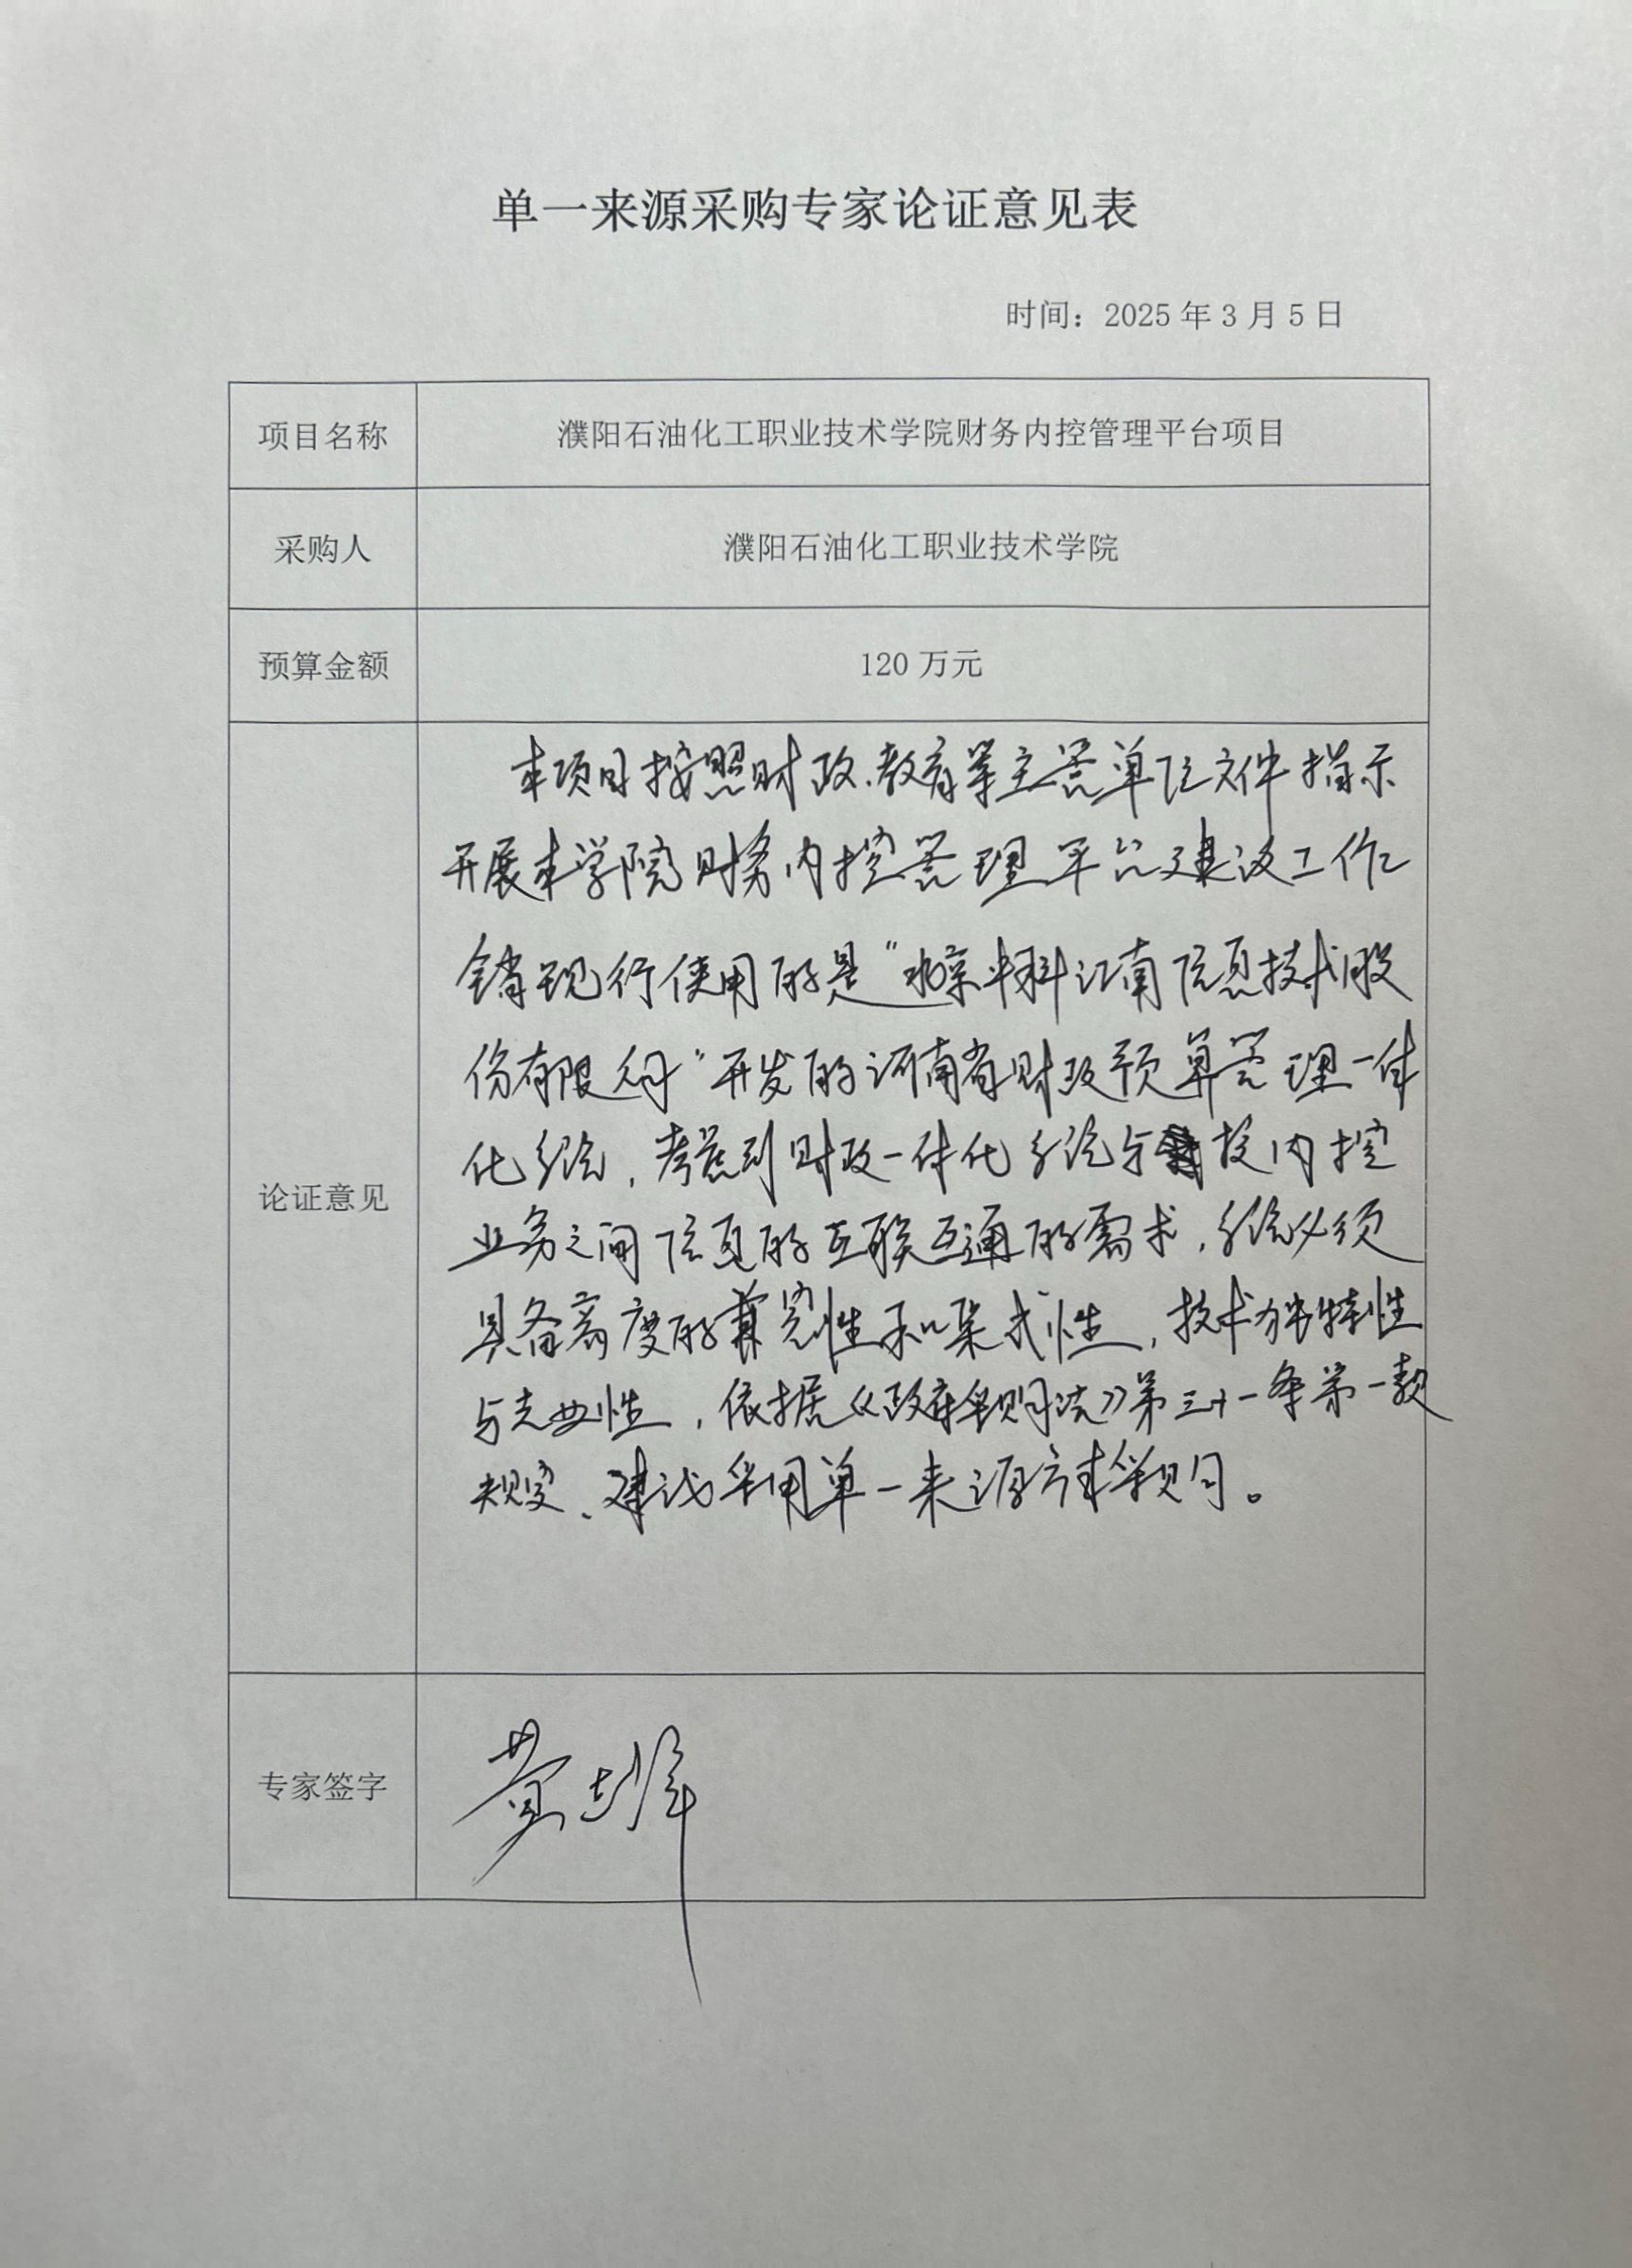 单一来源采购专家论证意见表
时间：2025年3月5日
项目名称 濮阳石油化工职业技术学院财务内控管理平台项目
采购人 濮阳石油化工职业技术学院
预算金额 120万元
论证意见
本项目按照财政、教育等主管单位文件指示
开展本学院财务内控管理平台建设工作
全省现行使用的是“北京中科江南信息技术股
份有限公司”开发的河南省财政预算管理一体
化系统，考虑到财政一体化系统与校内控
业务之间信息的互联互通的需求，系统必须
具备高度的兼容性和集成性，技术独特性
与专业性，依据《政府采购法》第三十一条第一款
规定、建议采用单一来源方式采购。
专家签字